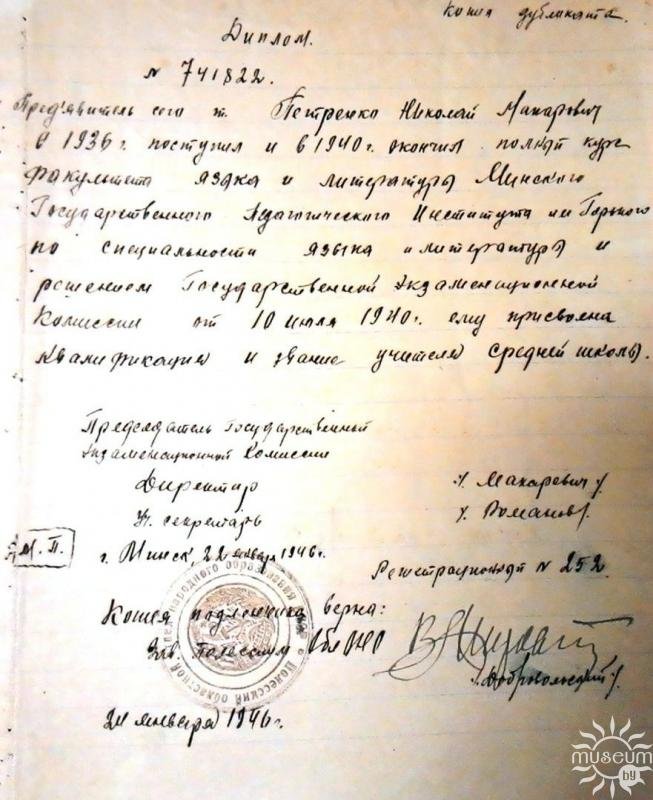 Копия дубликата.
Диплом.
№ 741822.
Пред'явитель сего т. Петренко Николай Макарович
в 1936 г. поступил и в 1940 г. окончил полный курс
факультета языка и литературы Минского
Государственного Педагогического Института им Горького
по специальности языка и литературы и
решением Государственной Экзаменационной
Комиссии от 10 июля 1940 г. ему присвоена
квалификация и звание учителя средней школы.
Председатель Государственный
Экзаменационной Комиссии
Директор /. Макаревич /.
секретарь /. Романов /.
М. П.
г. Минск, 22 января 1946 г.
Регистрационный № 252
Копия подлинника верна:
Зав. Полесским ОблОНО
/. Добровольский /.
24 января 1946 г.
народного образования
Полесский областной
museum
by